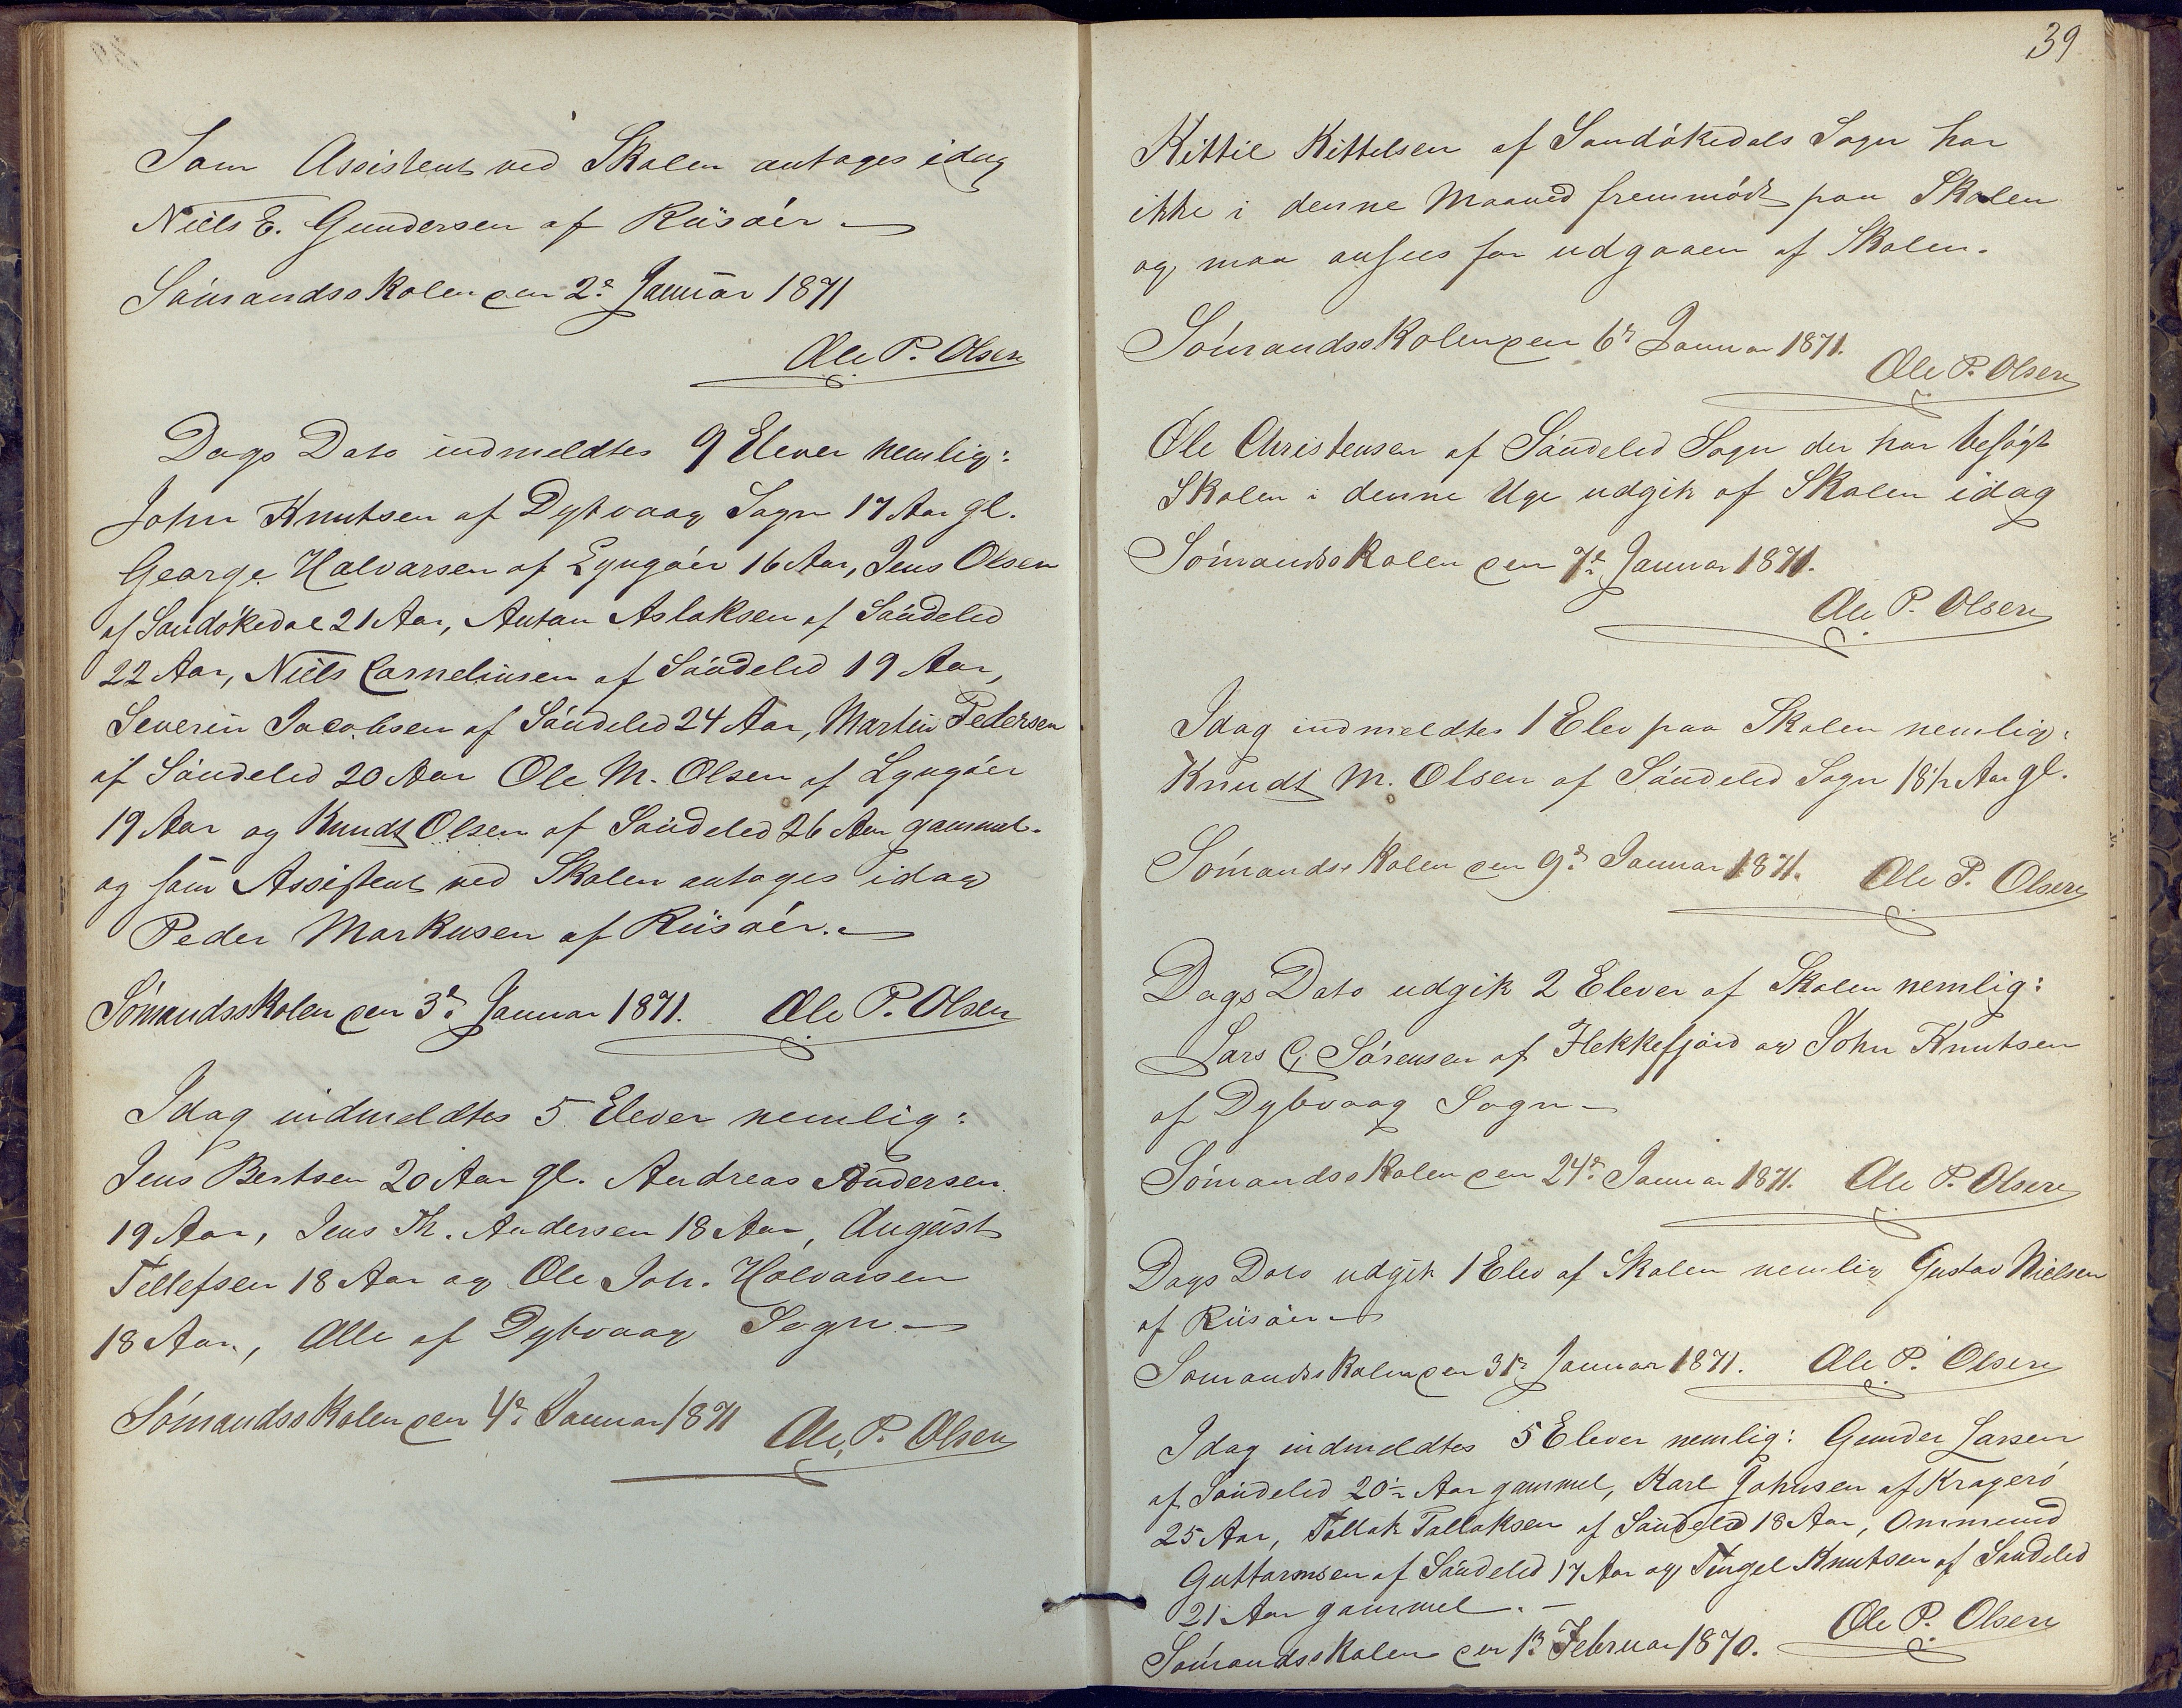 Som Assistent ved Skolen antages idag
Niels E. Gundersen af Riisøer
Sømandsskolen den 2d Januar 1871
Ole P. Olsen
Dags Dato indmeldtes 9 Elever nemlig:
John Knutsen af Dybvaag Sogn 17 Aar gl.
George Halvorsen af Lyngøer 16 Aar, Jens Olsen
af Sandøkedal 21 Aar, Anton Aslaksen af Søndeled
22 Aar, Niels Corneliusen af Søndeled 19 Aar,
Severin Jacobsen af Søndeled 24 Aar, Martin Pedersen
af Søndeled 20 Aar Ole M. Olsen af Lyngøer
19 Aar og Knudt Olsen af Søndeled 26 Aar gammel.
og som Assistent ved Skolen antages idag
Peder Markusen af Riisøer.
Sømandsskolen den 3d Januar 1871. Ole P. Olsen
Idag indmeldtes 5 Elever nemlig:
Jens Bertsen 20 Aar gl. Andreas Andersen
19 Aar, Jens Th. Andersen 18 Aar, August
Tellefsen 18 Aar og Ole Joh. Halvorsen
18 Aar, Alle af Dybvaag Sogn
Sømandsskolen den 4d Januar 1871 Ole P. Olsen
39
Kittil Kittelsen af Sandøkedals Sogn har
ikke i denne Maaned fremmødt paa Skolen
og maa ansees for udgaaen af Skolen.
Sømandsskolen den 6d Januar 1871.
Ole P. Olsen
Ole Christensen af Søndeled Sogn der har besøgt
Skolen i denne Uge udgik af Skolen idag
Sømandsskolen den 7d Januar 1871.
Ole P. Olsen
Idag indmeldtes 1 Elev paa Skolen nemlig:
Knudt M. Olsen af Søndeled Sogn 18½ Aar gl.
Sømandsskolen den 9d Januar 1871. Ole P. Olsen
Dags Dato udgik 2 Elever af Skolen nemlig:
Lars C. Sørensen af Flekkefjord og John Knutsen
af Dybvaag Sogn
Sømandsskolen den 24d Januar 1871. Ole P. Olsen
Dags Dato udgik 1 Elev af Skolen nemlig Gustav Nielsen
af Riisøer
Sømandsskolen den 31d Januar 1871. Ole P. Olsen
Idag indmeldtes 5 Elever nemlig: Gunder Larsen
af Søndeled 20½ Aar gammel, Karl Johnsen af Kragerø
25 Aar, Tallak Tallaksen af Søndeled 18 Aar, Ommund
Guttormsen af Søndeled 17 Aar og Tingel Knutsen af Søndeled
21 Aar gammel. -
Ole P. Olsen
Sømandsskolen den 1d Februar 1870.